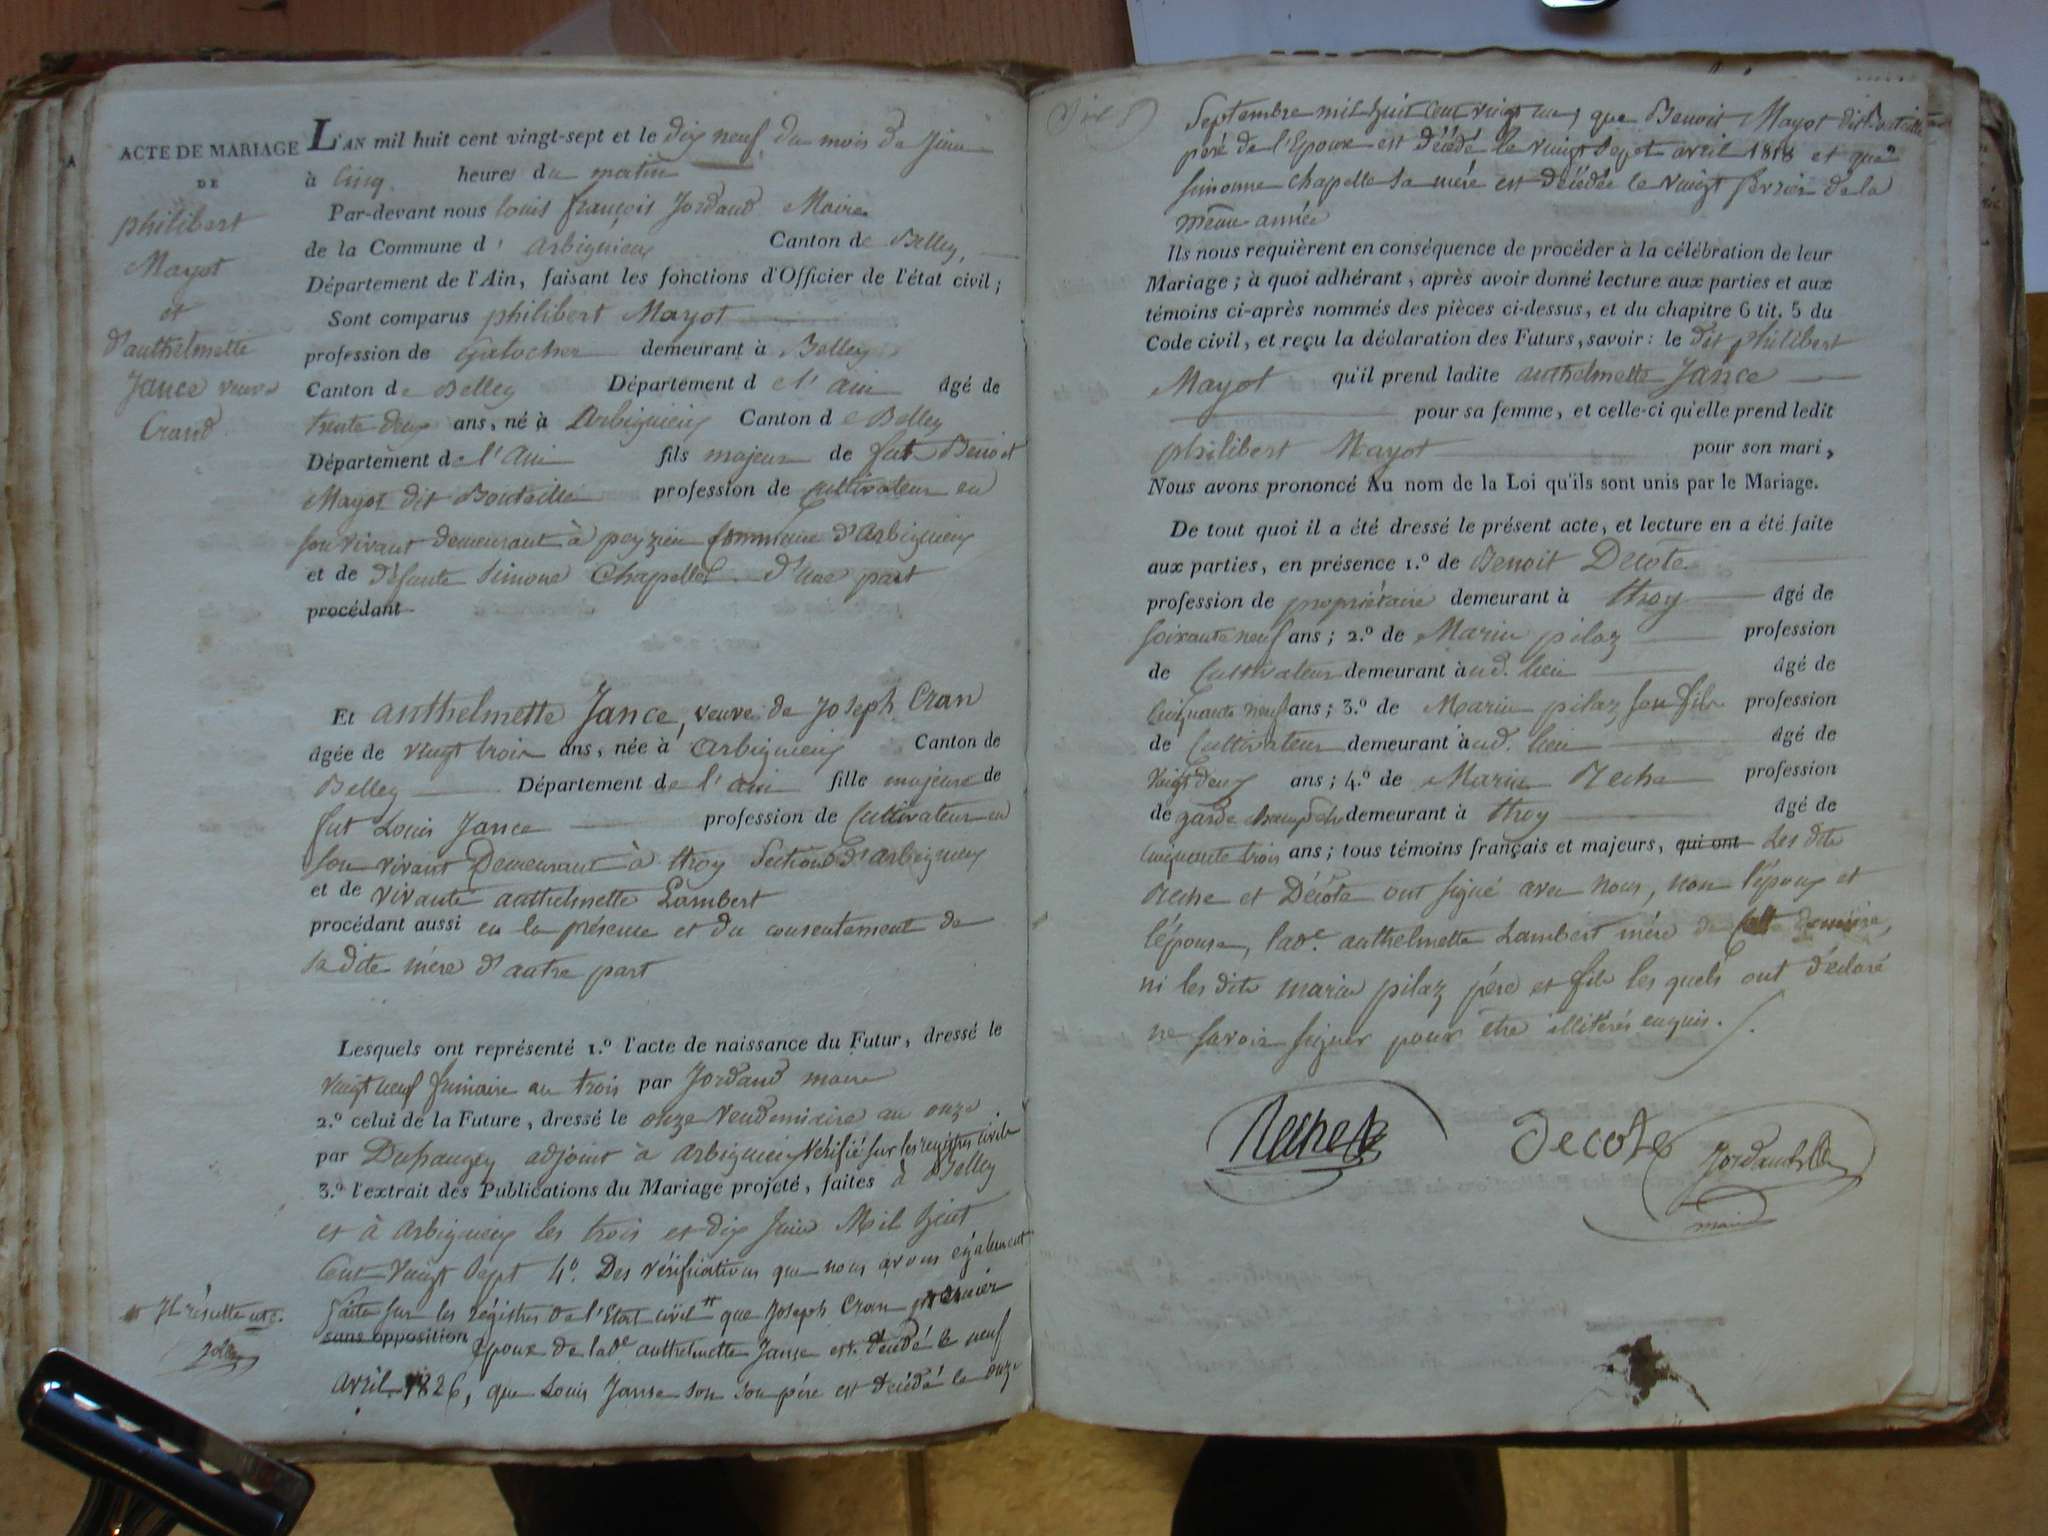 ACTE DE MARIAGE
DE
philibert
Mayot
et
d'anthelmette
Jance veuve
Crand
L'AN mil huit cent vingt-sept et le dix neuf du mois de Juin
à Cinq heures du matin
Par-devant nous louis françois Jordand Maire
de la Commune d'Arbignieux Canton de Belley,
Département de l'Ain, faisant les fonctions d'Officier de l'état civil;
Sont comparus philibert Mayot
profession de galocher demeurant à Belley
Canton de Belley Département de l'ain âgé de
trente deux ans, né à Arbignieux Canton de Belley
Département de l'Ain fils majeur de fut Benoit
Mayot dit Bouteille profession de Cultivateur en
son vivant demeurant à peyzieu commune d'Arbignieux
et de défunte Simone Chapelle d'une part
procédant
Et anthelmette Jance, veuve de Joseph Cran
âgée de vingt trois ans, née à Arbignieux Canton de
Belley Département de l'ain fille majeure de
fut Louis Jance profession de Cultivateur en
son vivant Demeurant à thoy Section d'Arbignieux
et de vivante anthelmette Lambert
procédant aussi en la présence et du consentement de
sa dite mère d'autre part
Lesquels ont représenté 1.º l'acte de naissance du Futur, dressé le
vingt neuf frimaire an trois par Jordand maire
2.º celui de la Future, dressé le onze vendemiaire an onze
par adjoint à Arbignieux Vérifié sur les registres civils
3.º l'extrait des Publications du Mariage projeté, faites à Belley
et à Arbignieux les trois et dix Juin Mil huit
Cent Vingt Sept 4º. Des vérifications que nous avons également
faite sur les régistres de l'Etat civil # que Joseph Cran premier
sans opposition époux de lade anthelmette Janse est décédé le neuf
avril 1826, que Louis Janse son son père est décédé le onze
# Il résulte
Septembre mil huit cent vingt un, que Benoit Mayot dit Bouteille
père de l'Epoux est décédé le vingt Sept avril 1818 et que
simonne chapelle sa mère est décédée le vingt fevrier de la
même année
Ils nous requièrent en conséquence de procéder à la célébration de leur
Mariage; à quoi adhérant, après avoir donné lecture aux parties et aux
témoins ci-après nommés des pièces ci-dessus, et du chapitre 6 tit. 5 du
Code civil, et reçu la déclaration des Futurs, savoir: le dit philibert
Mayot qu'il prend ladite anthelmette Jance
pour sa femme, et celle-ci qu'elle prend ledit
philibert Mayot pour son mari,
Nous avons prononcé Au nom de la Loi qu'ils sont unis par le Mariage.
De tout quoi il a été dressé le présent acte, et lecture en a été faite
aux parties, en présence 1.º de Benoit Decote
profession de propriétaire demeurant à thoy âgé de
soixante neuf ans; 2.º de Marin pilaz profession
de Cultivateur demeurant à ud. lieu âgé de
Cinquante neuf ans; 3.º de Marin pilaz son fils profession
de Cultivateur demeurant à ud. lieu âgé de
vingt deux ans; 4.º de Marin Reche profession
de garde champetre demeurant à thoy âgé de
cinquante trois ans; tous témoins français et majeurs, qui ont Les dits
Reche et Décote ont signé avec nous, non l'époux et
l'épouse, lade. anthelmette Lambert mère de Cette dernière,
ni les dits marin pilaz père et fils les quels ont déclaré
ne savoir signer pour être illitérés enquis.
Reche
Decote
Jordand
maire